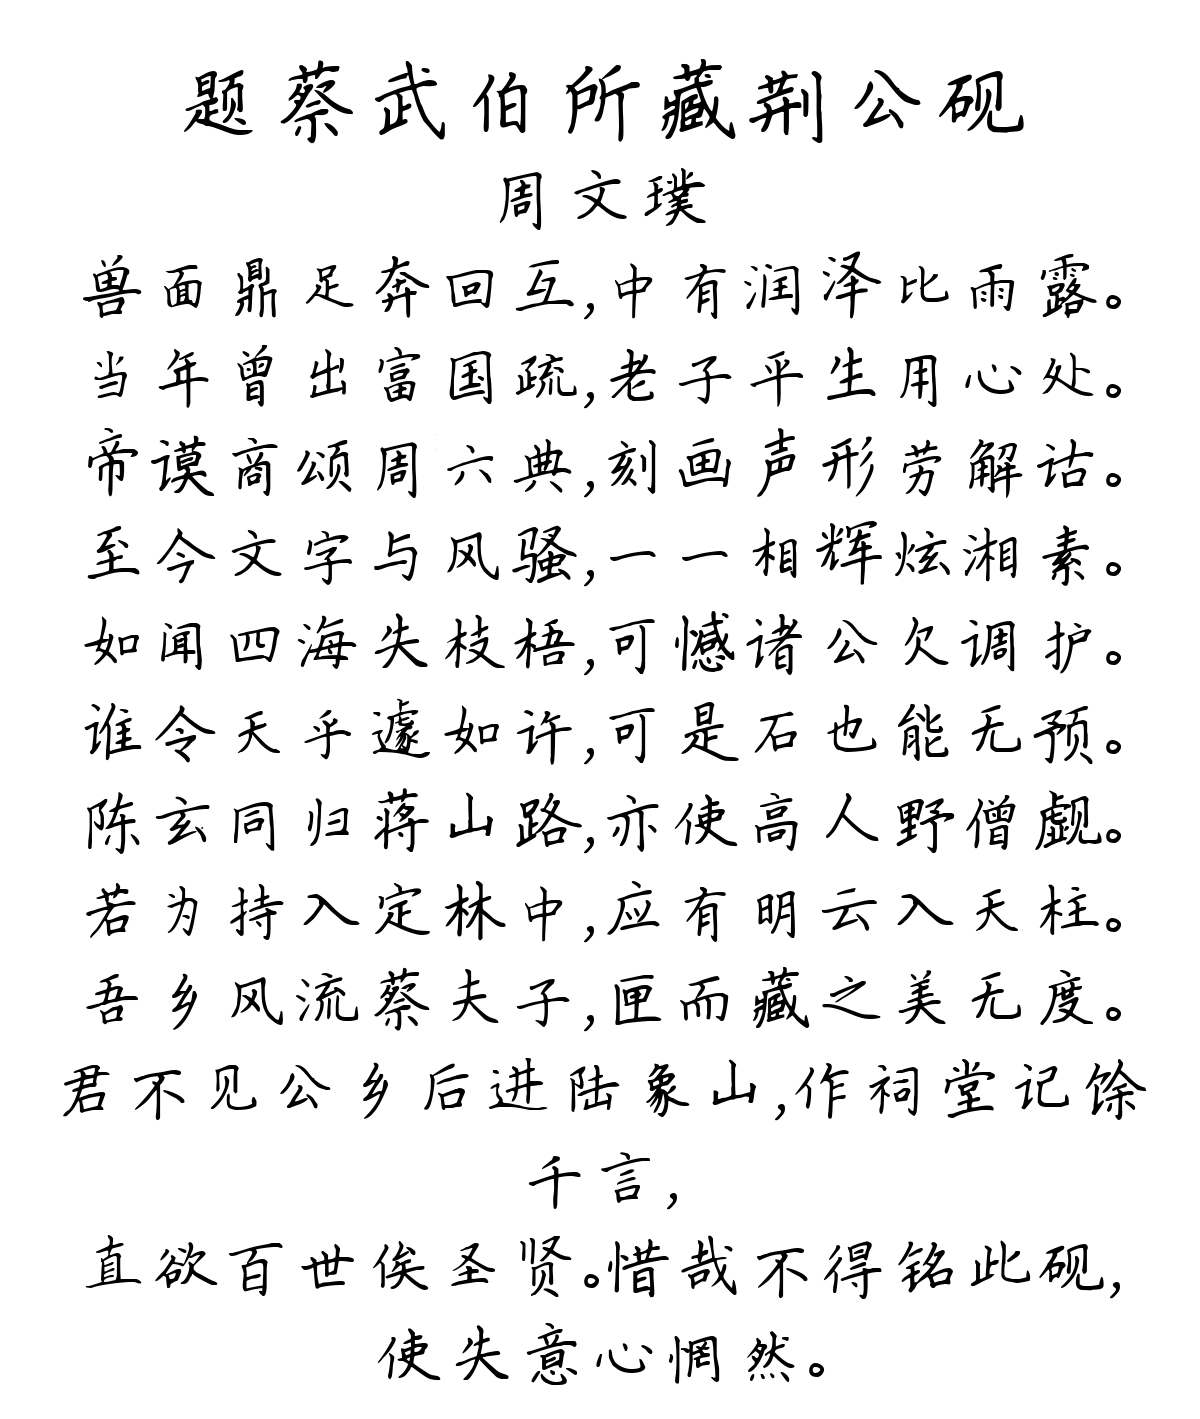 题蔡武伯所藏荆公砚
周文璞
兽面鼎足奔回互,中有润泽比雨露。
当年曾出富国疏,老子平生用心处。
帝谟商颂周六典,刻画声形劳解诂。
至今文字与风骚,一一相辉炫湘素。
如闻四海失枝梧,可憾诸公欠调护。
谁令天乎遽如许,可是石也能无预。
陈玄同归蒋山路,亦使高人野僧觑。
若为持入定林中,应有明云入天柱。
吾乡风流蔡夫子,匣而藏之美无度。
君不见公乡后进陆象山,作祠堂记馀
千言,
直欲百世俟圣贤。惜哉不得铭此砚,
使失意心惘然。